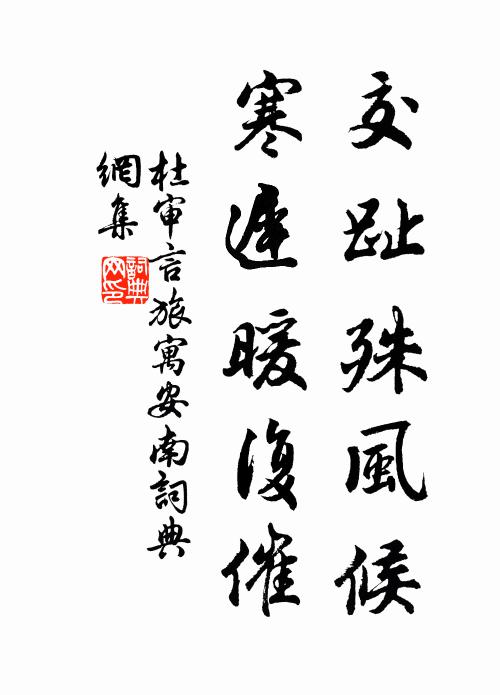 交趾殊風候
寒遲暖復催
杜审言旅寓安南詞典
網集
詞典
网印